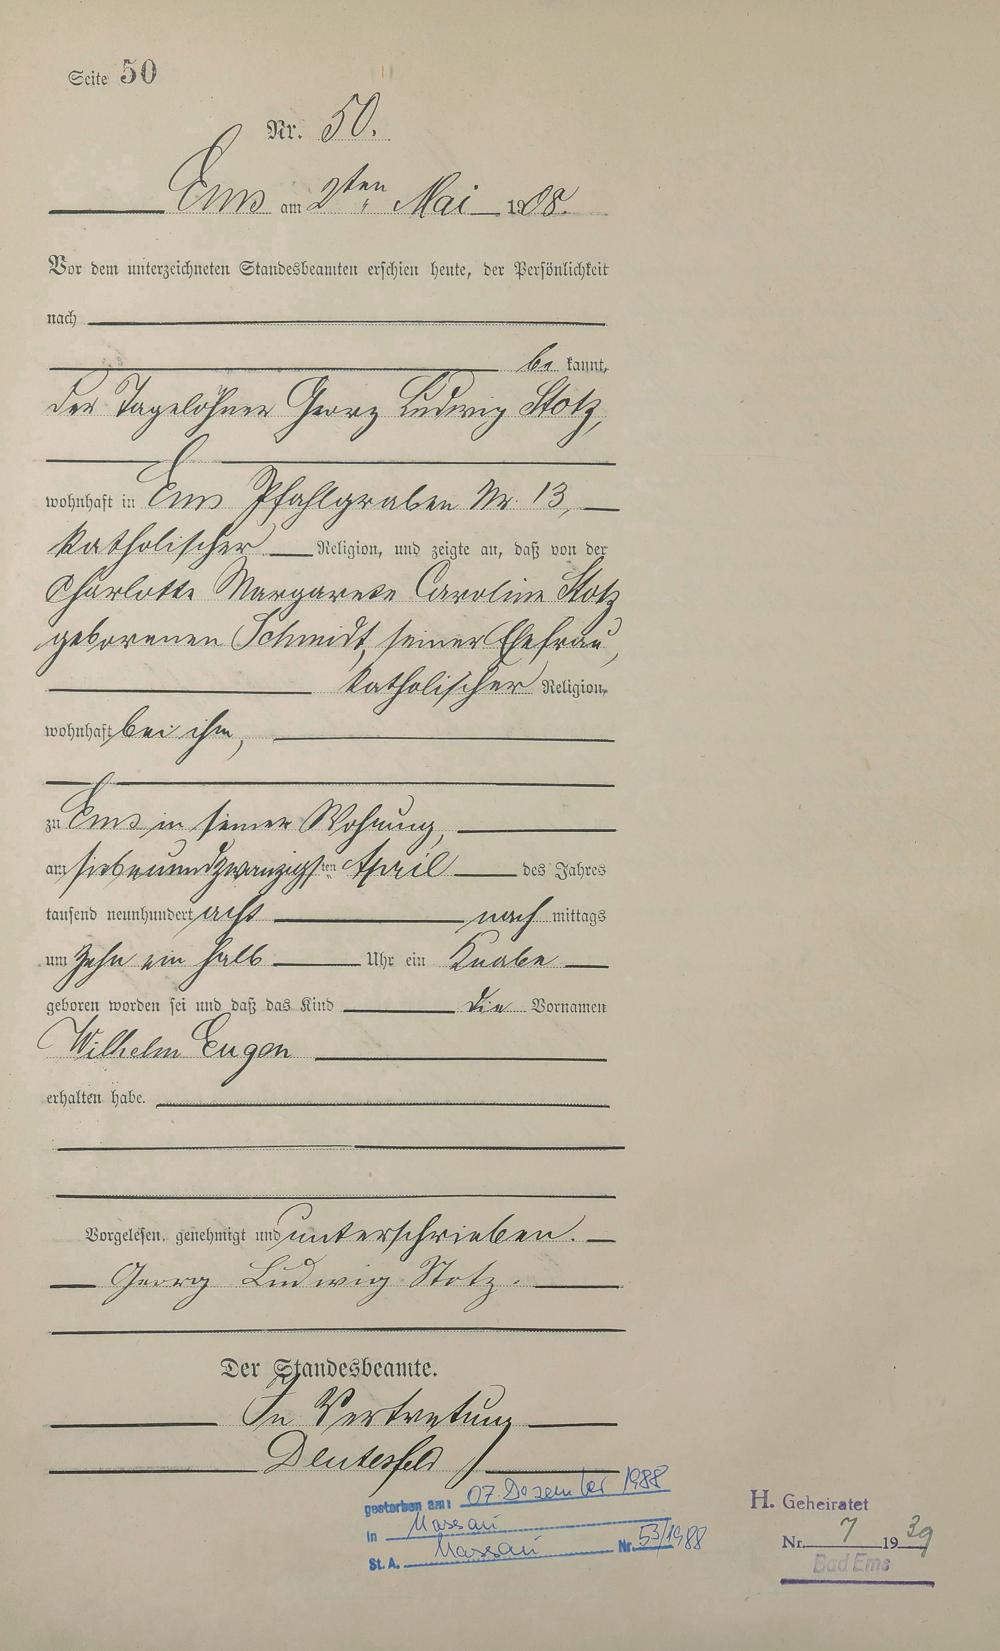 Seite 50
Nr. 50.
Ems am 2ten Mai 1908.
Vor dem unterzeichneten Standesbeamten erschien heute, der Persönlichkeit
nach
bekannt,
der Tagelöhner Georg Ludwig Stotz,
wohnhaft in Ems Pfahlgraben Nr. 13,
katholischer Religion, und zeigte an, daß von der
Charlotte Margarete Caroline Stotz
geborenen Schmidt, seiner Ehefrau,
katholischer Religion,
wohnhaft bei ihm,
zu Ems in seiner Wohnung,
am siebenundzwanzigsten April des Jahres
tausend neunhundert acht nachmittags
um zehn ein halb Uhr ein Knabe
geboren worden sei und daß das Kind die Vornamen
Wilhelm Eugen
erhalten habe.
Vorgelesen, genehmigt und unterschrieben.
Georg Ludwig Stotz.
Der Standesbeamte.
In Vertretung
gestorben am: 07. Dezember 1988
in Nassau
St. A. Nassau Nr. 53/1988
H. Geheiratet
Nr. 7 1939
Bad Ems